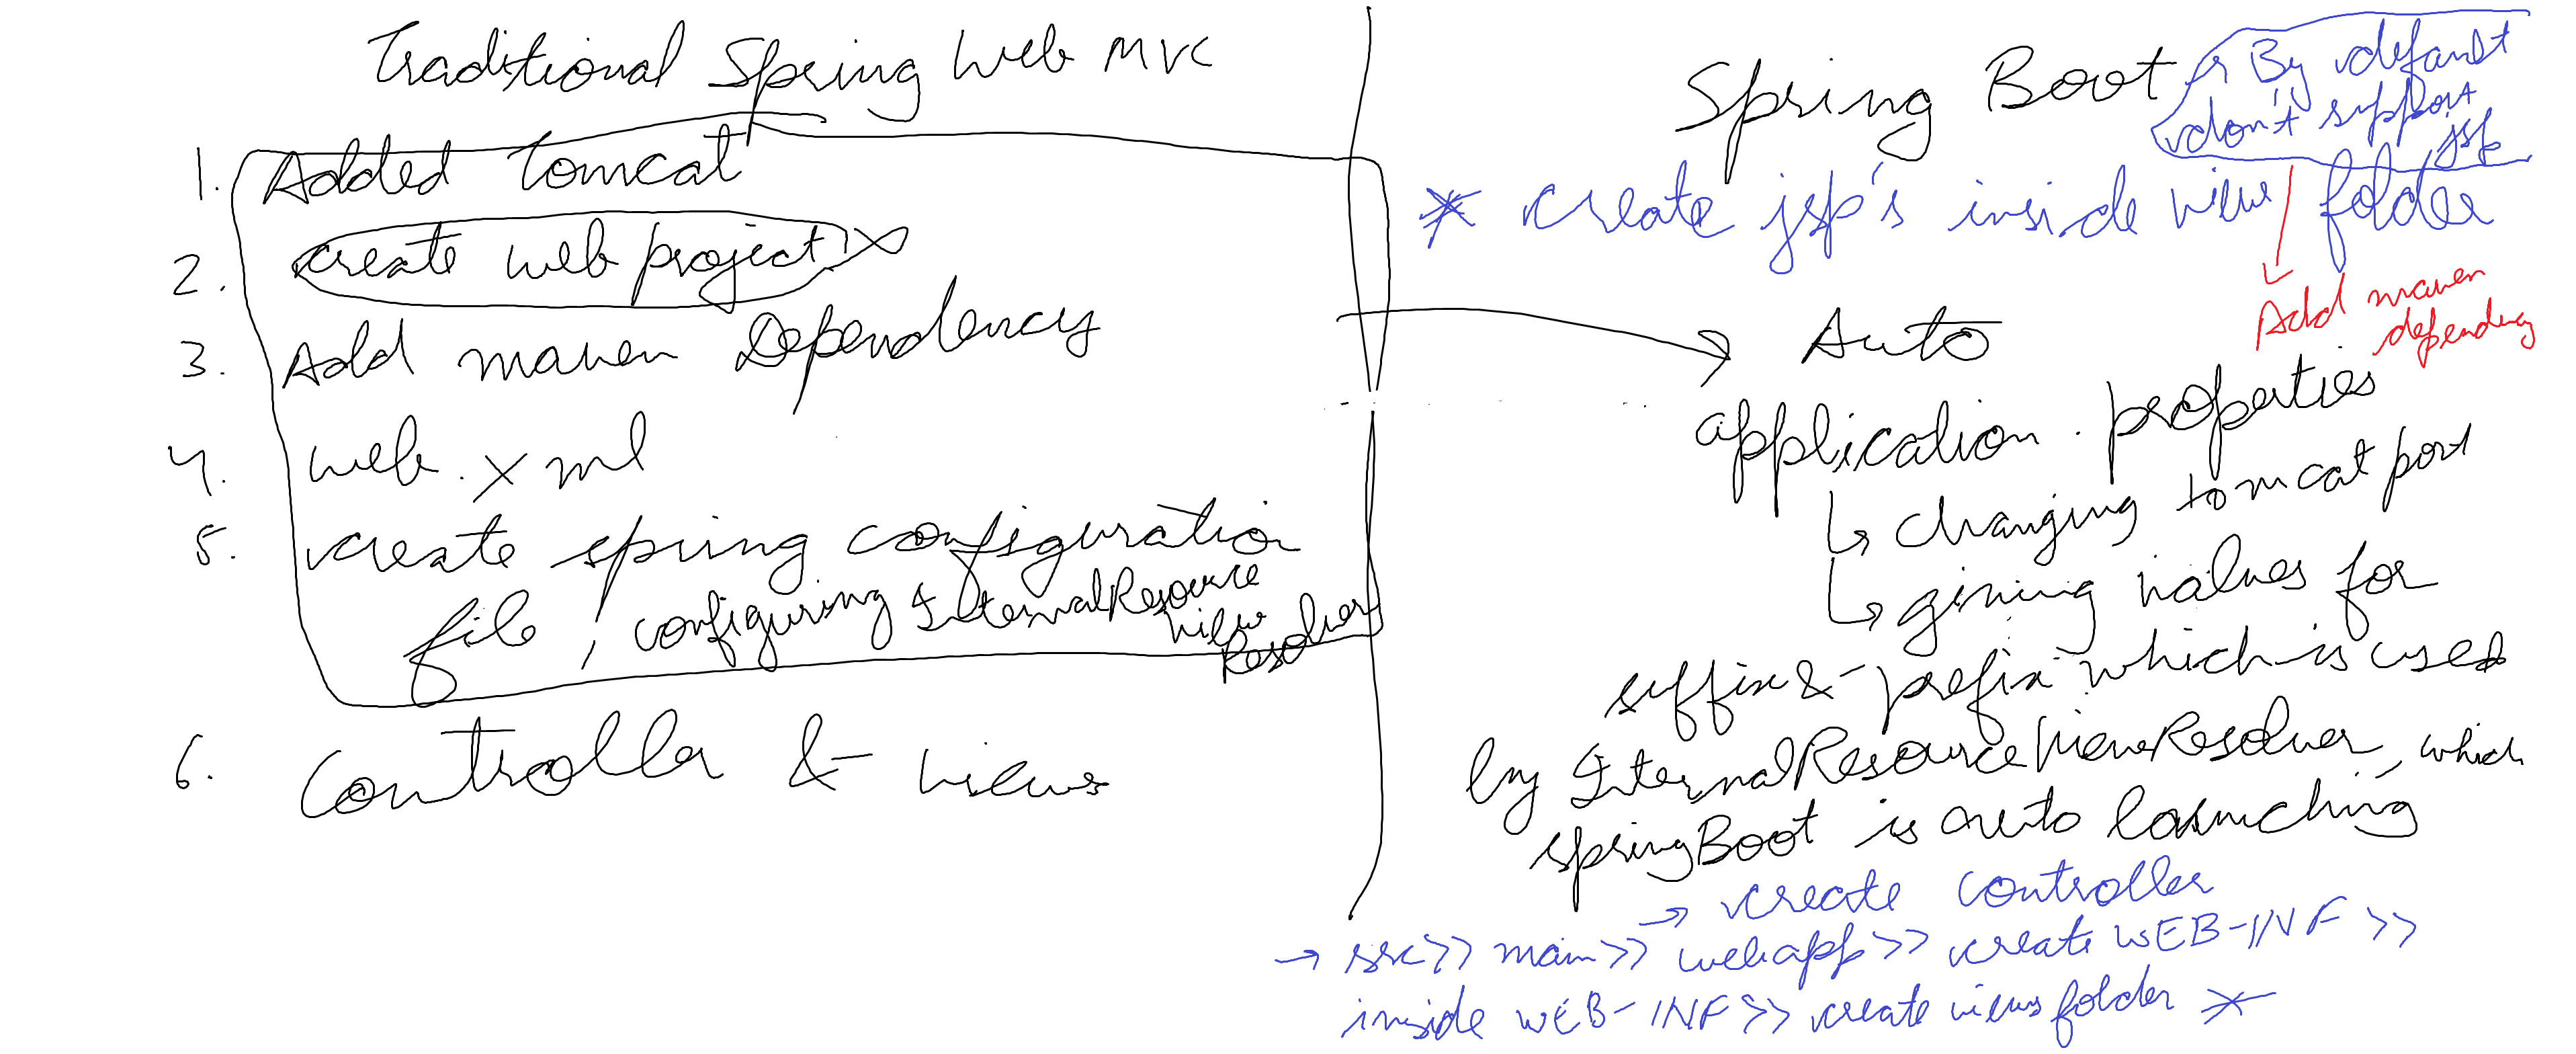 Traditional Spring Web MVC
1. Added Tomcat
2. create web project
3. Add maven Dependency
4. web.xml
5. create spring configuration
file, configuring InternalResource
View
Resolver
6. Controller & views
Spring Boot
By default
don't support
jsp
* create jsp's inside view folder
Add maven
dependency
Auto
application.properties
changing tomcat port
giving values for
suffix & prefix which is used
by InternalResourceViewResolver, which
springBoot is auto launching
→ create controller
→ src>> main>> webapp>> create WEB-INF >>
inside WEB-INF>> create views folder *